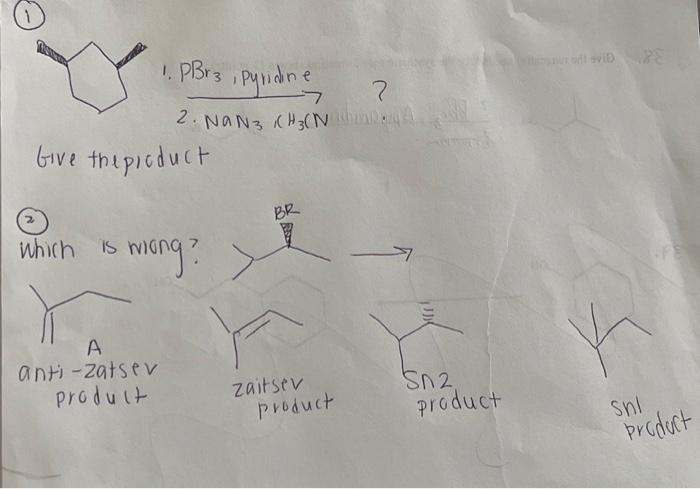 1
1. PBr3, pyridine
2. NaN3, CH3CN
?
Give the product
2
Which is wrong?
BR
A
anti-zatsev
product
zaitsev
product
Sn2
product
sn1
product
38. Give the